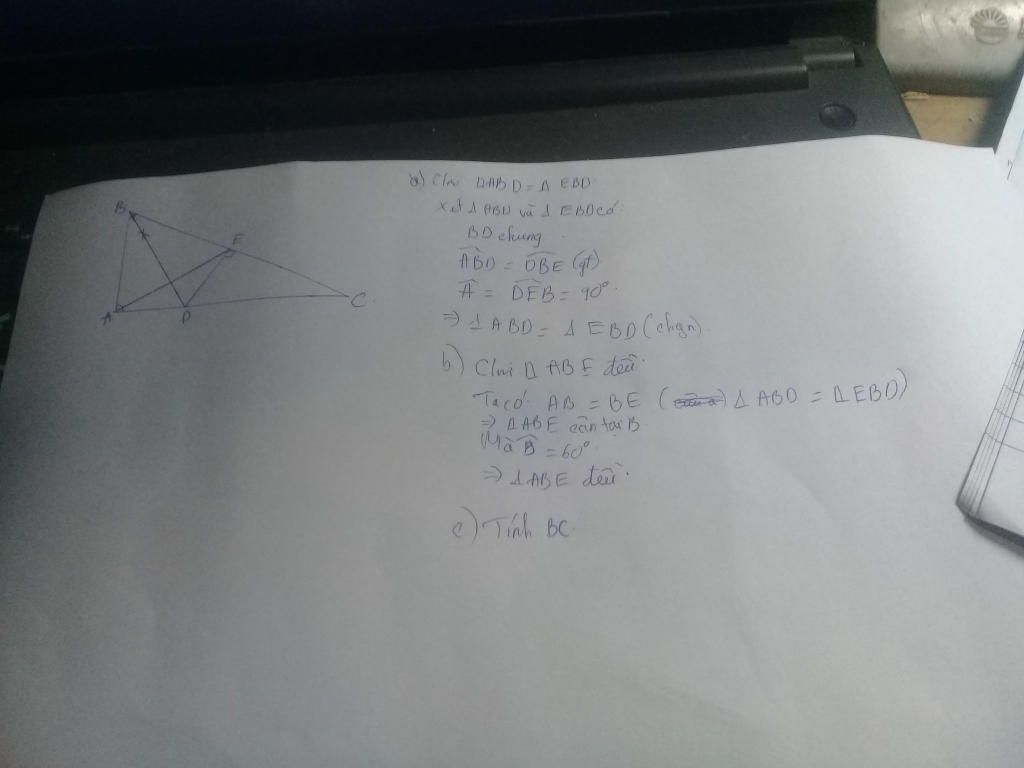 B
E
A
D
C
a) Cm ΔABD = Δ EBD
Xét Δ ABD và Δ EBD có:
BD chung
ABD = DBE (gt)
A = DEB = 90°
=> Δ ABD = Δ EBD (chgn)
b) Cm Δ ABE đều
Ta có: AB = BE ( Δ ABD = Δ EBD)
=> ΔABE cân tại B
Mà B = 60°
=> ΔABE đều
c) Tính BC